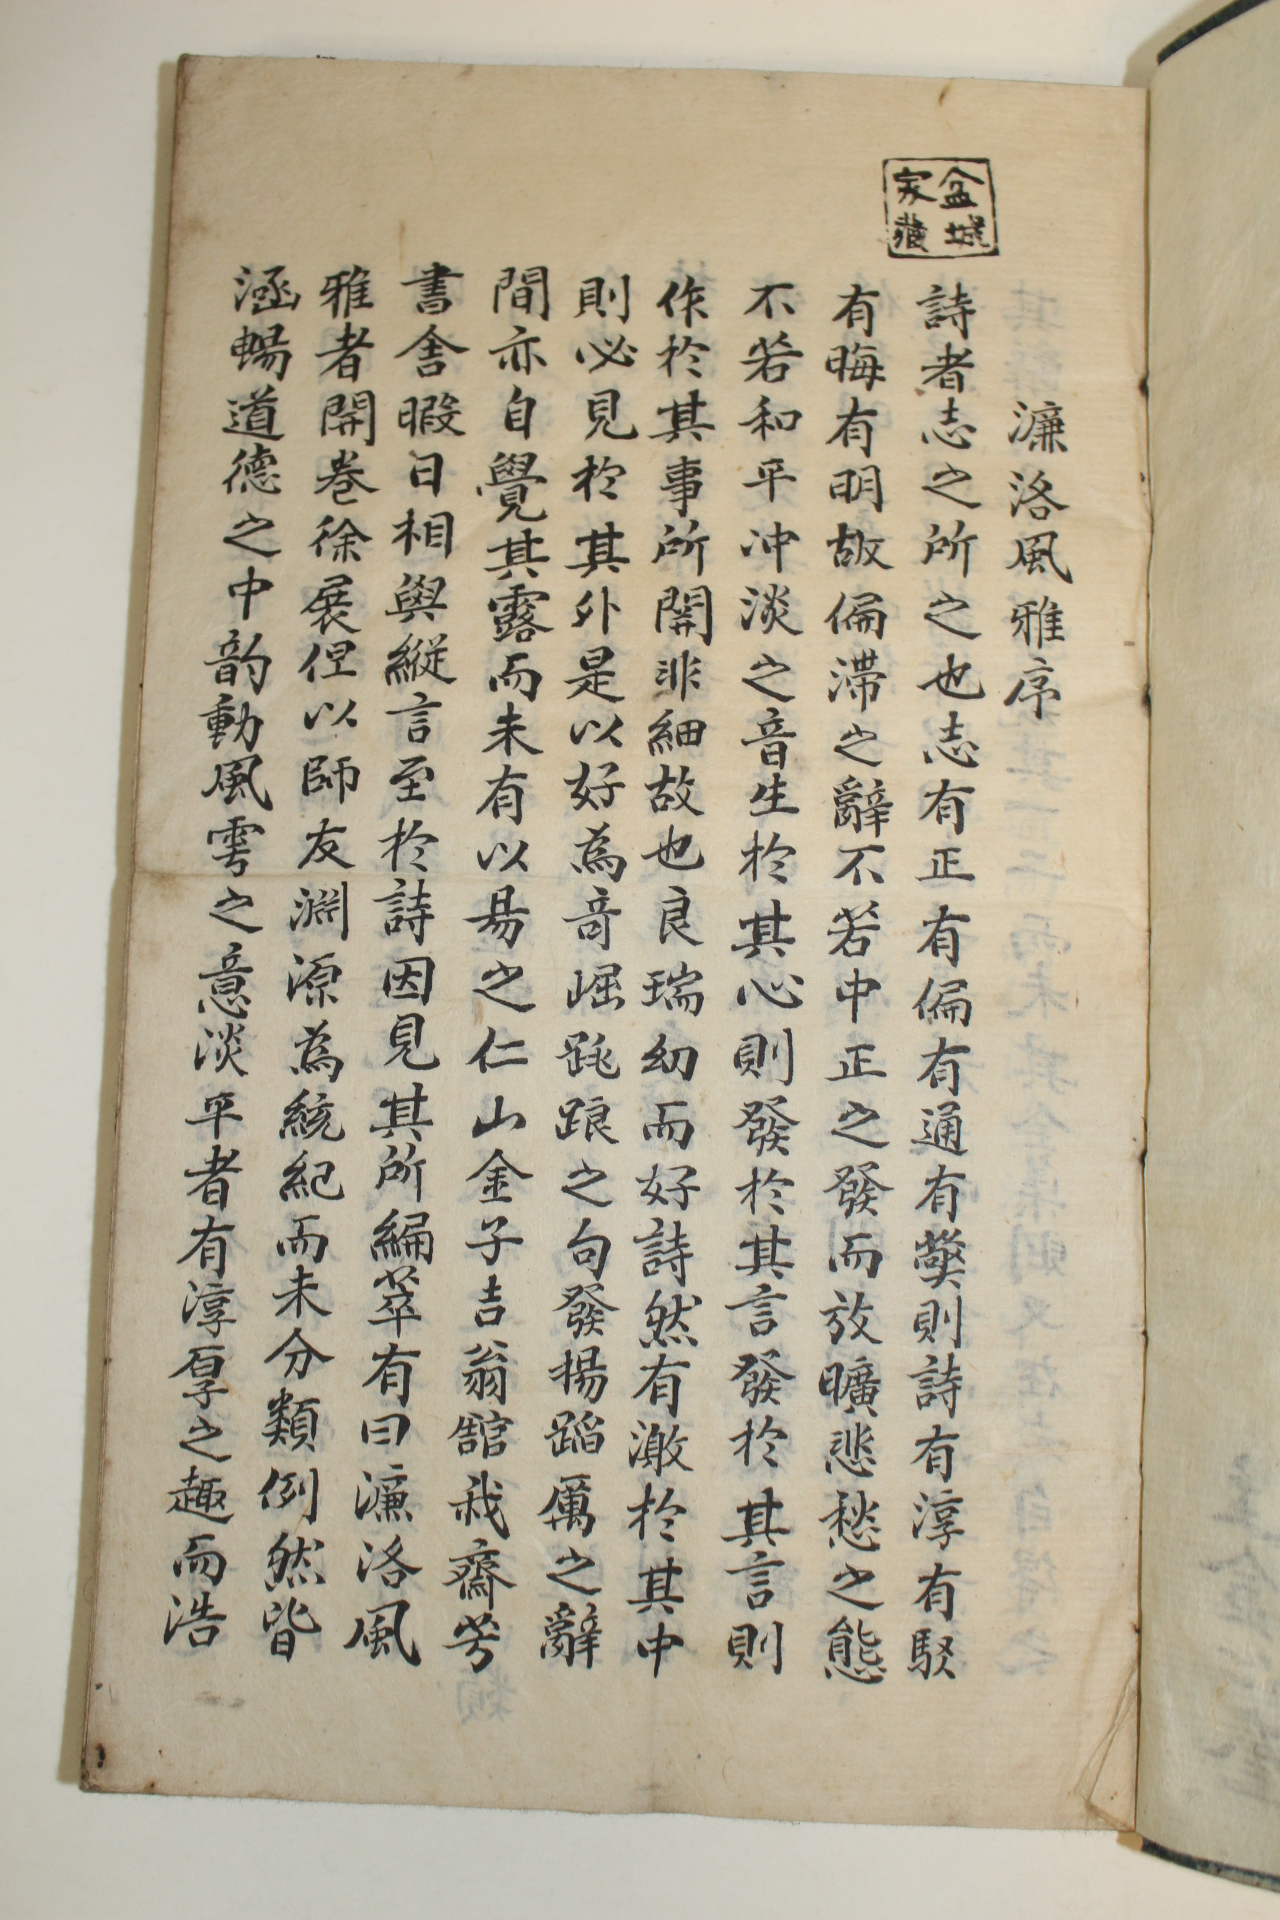 盆城
家藏
濂洛風雅序
詩者志之所之也志有正有偏有通有獘則詩有淳有駁
有晦有明故偏滯之辭不若中正之發而放曠悲愁之態
不若和平冲淡之音生於其心則發於其言發於其言則
作於其事所開非細故也良瑞幼而好詩然有激於其中
則必見於其外是以好為奇崛跳踉之句發揚蹈厲之辭
間亦自覺其露而未有以易之仁山金子吉翁舘我齋芳
書舍暇日相與縱言至於詩因見其所編萃有曰濂洛風
雅者開卷徐展但以師友淵源為統紀而未分類例然皆
涵暢道德之中韵動風雩之意淡平者有淳厚之趣而浩